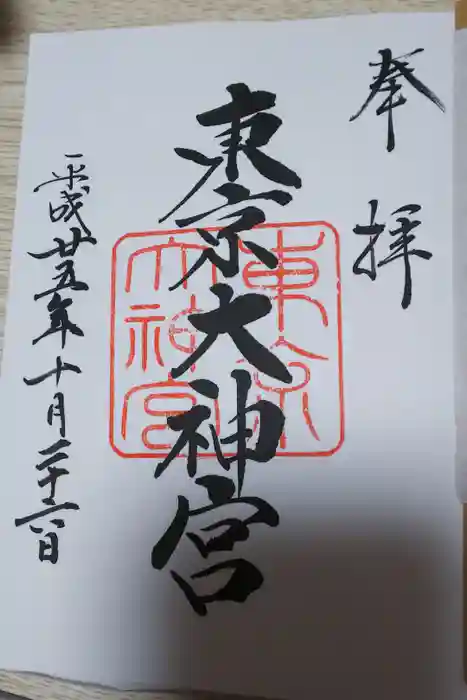 奉拝
東京大神宮
東京
大神宮
平成廿五年十月二十六日